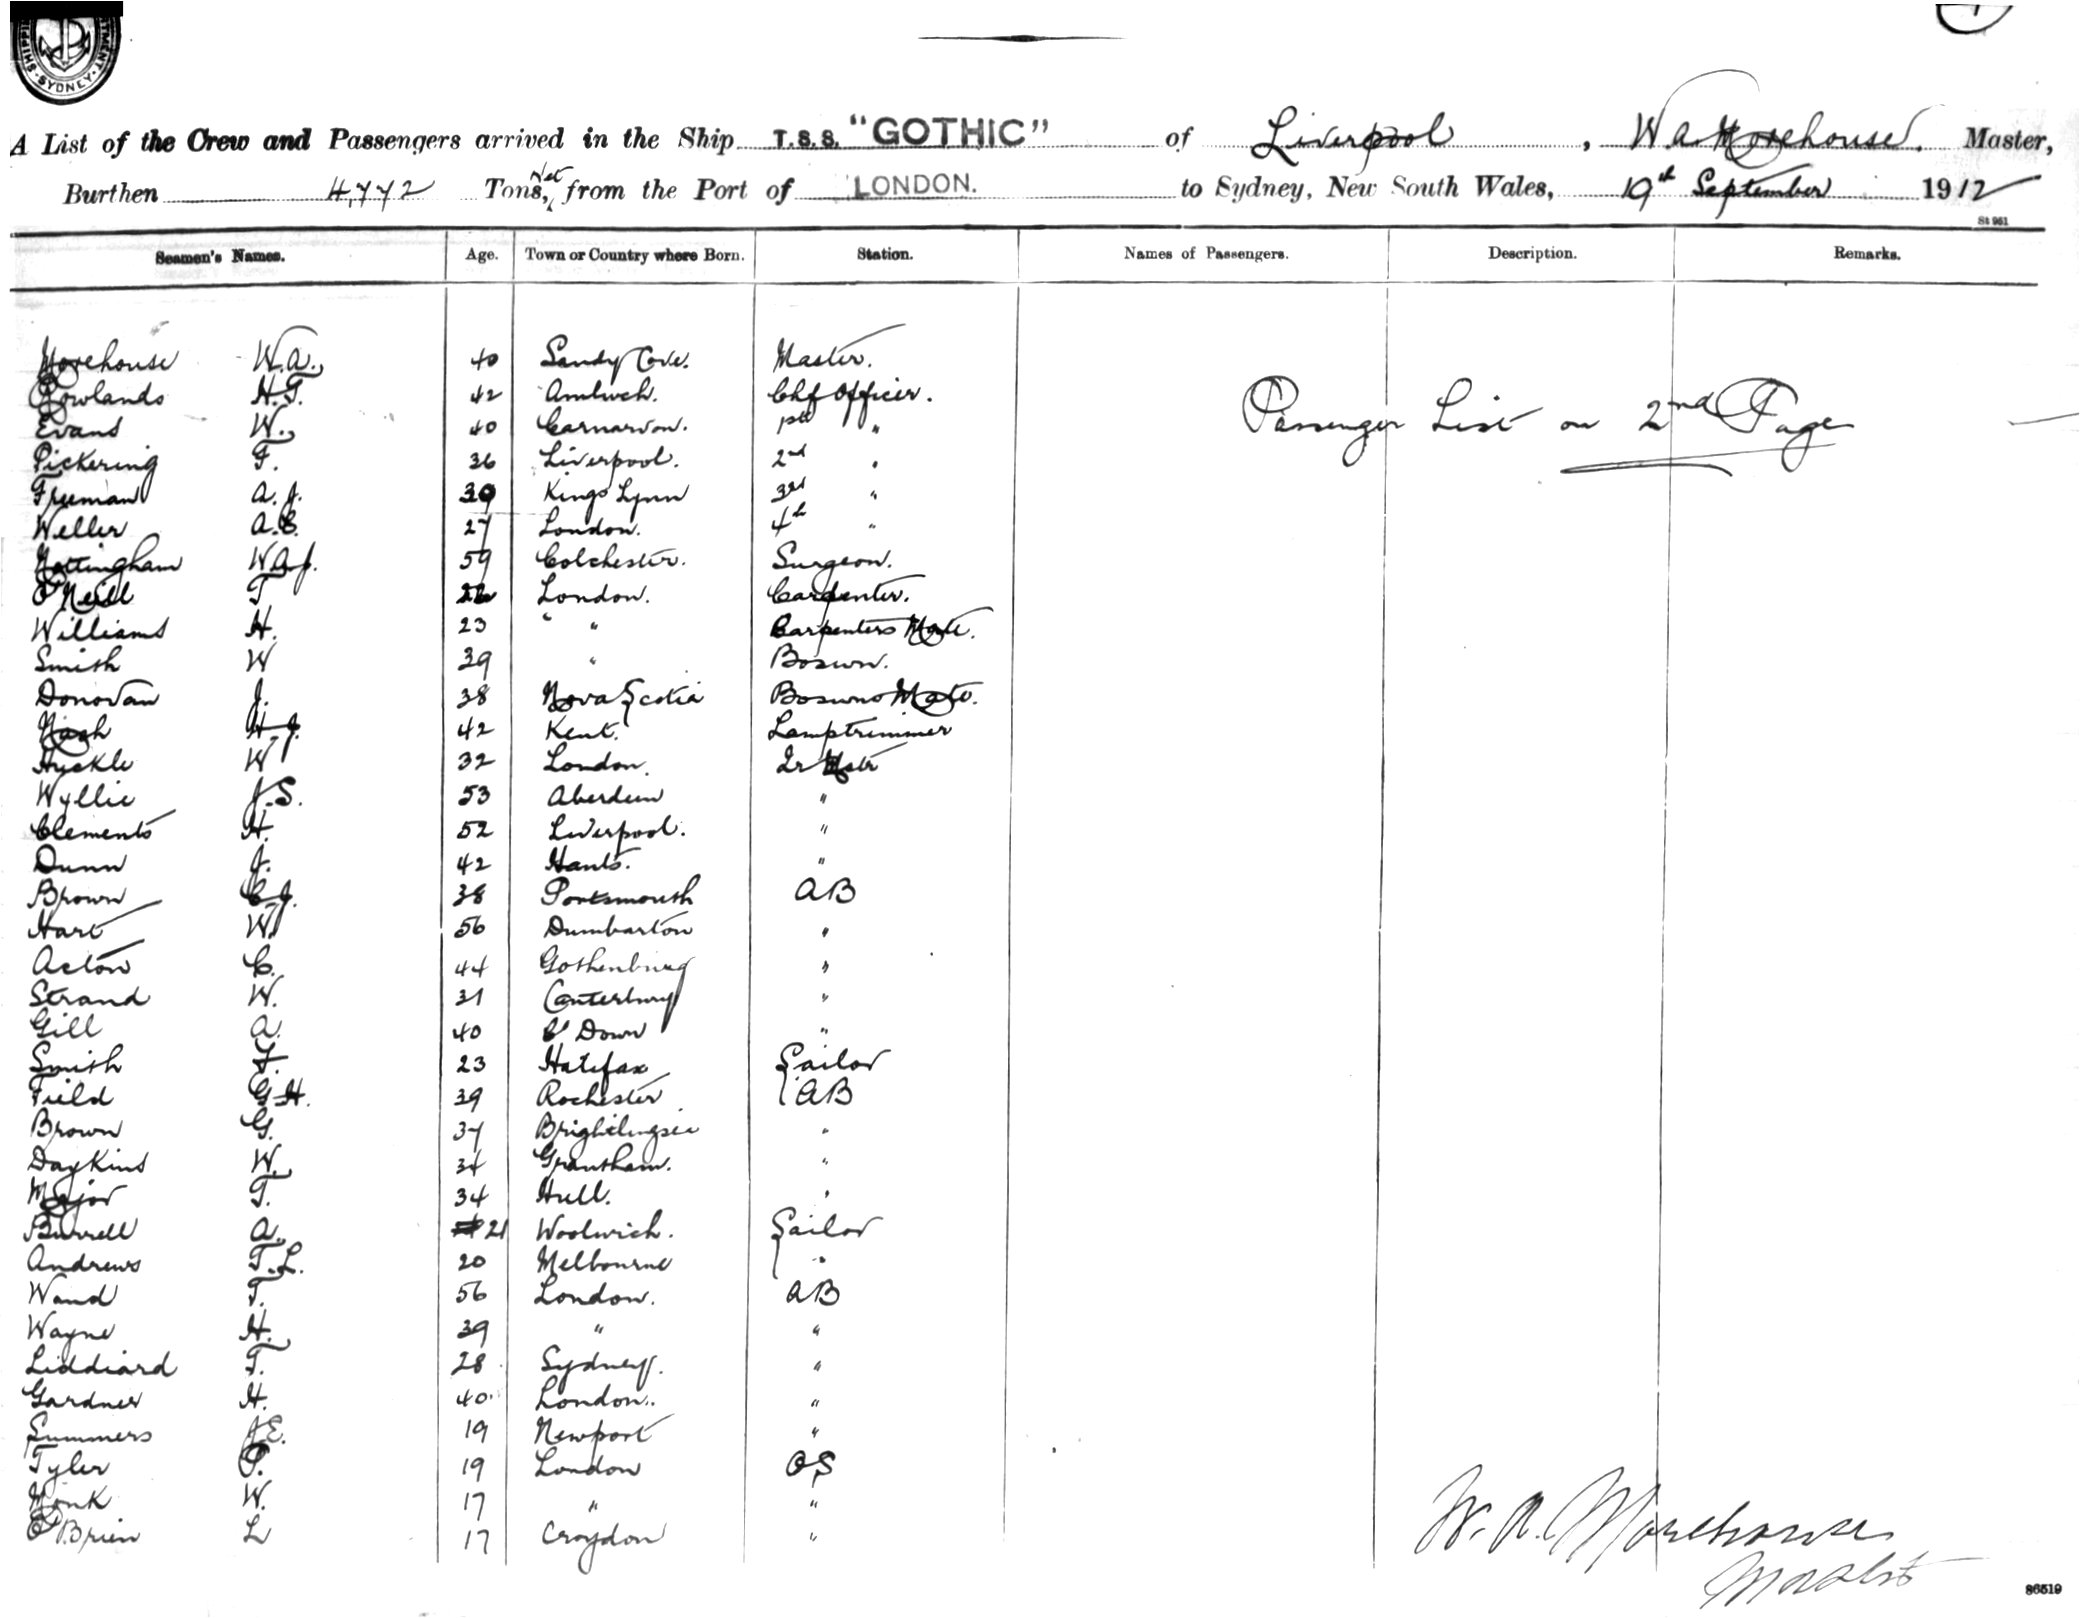 SYDNEY
A List of the Crew and Passengers arrived in the Ship T.S.S. "GOTHIC" of Liverpool, W A Morehouse. Master,
Burthen 4,772 Tons, Net from the Port of LONDON. to Sydney, New South Wales, 19th September 1912
St 961
Seamen's Names. Age. Town or Country where Born. Station. Names of Passengers. Description. Remarks.
Morehouse W.A., 40 Sandy Cove. Master.
Rowlands H.G. 42 Amlwch. Chf Officer.
Passenger List on 2nd Page
Evans W., 40 Carnarvon. 1st "
Pickering F. 36 Liverpool. 2nd "
Freeman A.J. 39 Kings Lynn 3rd "
Weller A.E. 27 London. 4th "
Nottingham W.A.J. 59 Colchester. Surgeon.
O'Neill T London. Carpenter.
Williams H. 23 " " Carpenters Mate.
Smith W 39 " Bosun.
Donovan J. 38 Nova Scotia Bosuns Mate.
Nash H.J. 42 Kent. Lamptrimmer
Huckle W 32 London. Qr Mstr
Wyllie J.S. 53 Aberdeen "
Clements H. 52 Liverpool. "
Dunn J. 42 Hants. "
Brown C.J. 38 Portsmouth AB
Hart W. 56 Dumbarton "
Acton C. 44 Gothenburg "
Strand W. 31 Canterbury "
Gill A. 40 Co Down "
Smith F. 23 Halifax Sailor
Field G.H. 39 Rochester AB
Brown G. 37 Brightlingsea "
Daykins W. 34 Grantham. "
Major T. 34 Hull. "
Burrell A. 21 Woolwich. Sailor
Andrews T.L. 20 Melbourne "
Wand T. 56 London. AB
Wayne H. 39 " "
Liddiard T. 28 Sydney. "
Gardner H. 40 London. "
Summers J.E. 19 Newport "
Tyler P. 19 London OS
Monk W. 17 " "
O'Brien L 17 Croydon "
W. A. Morehouse
Master
86519